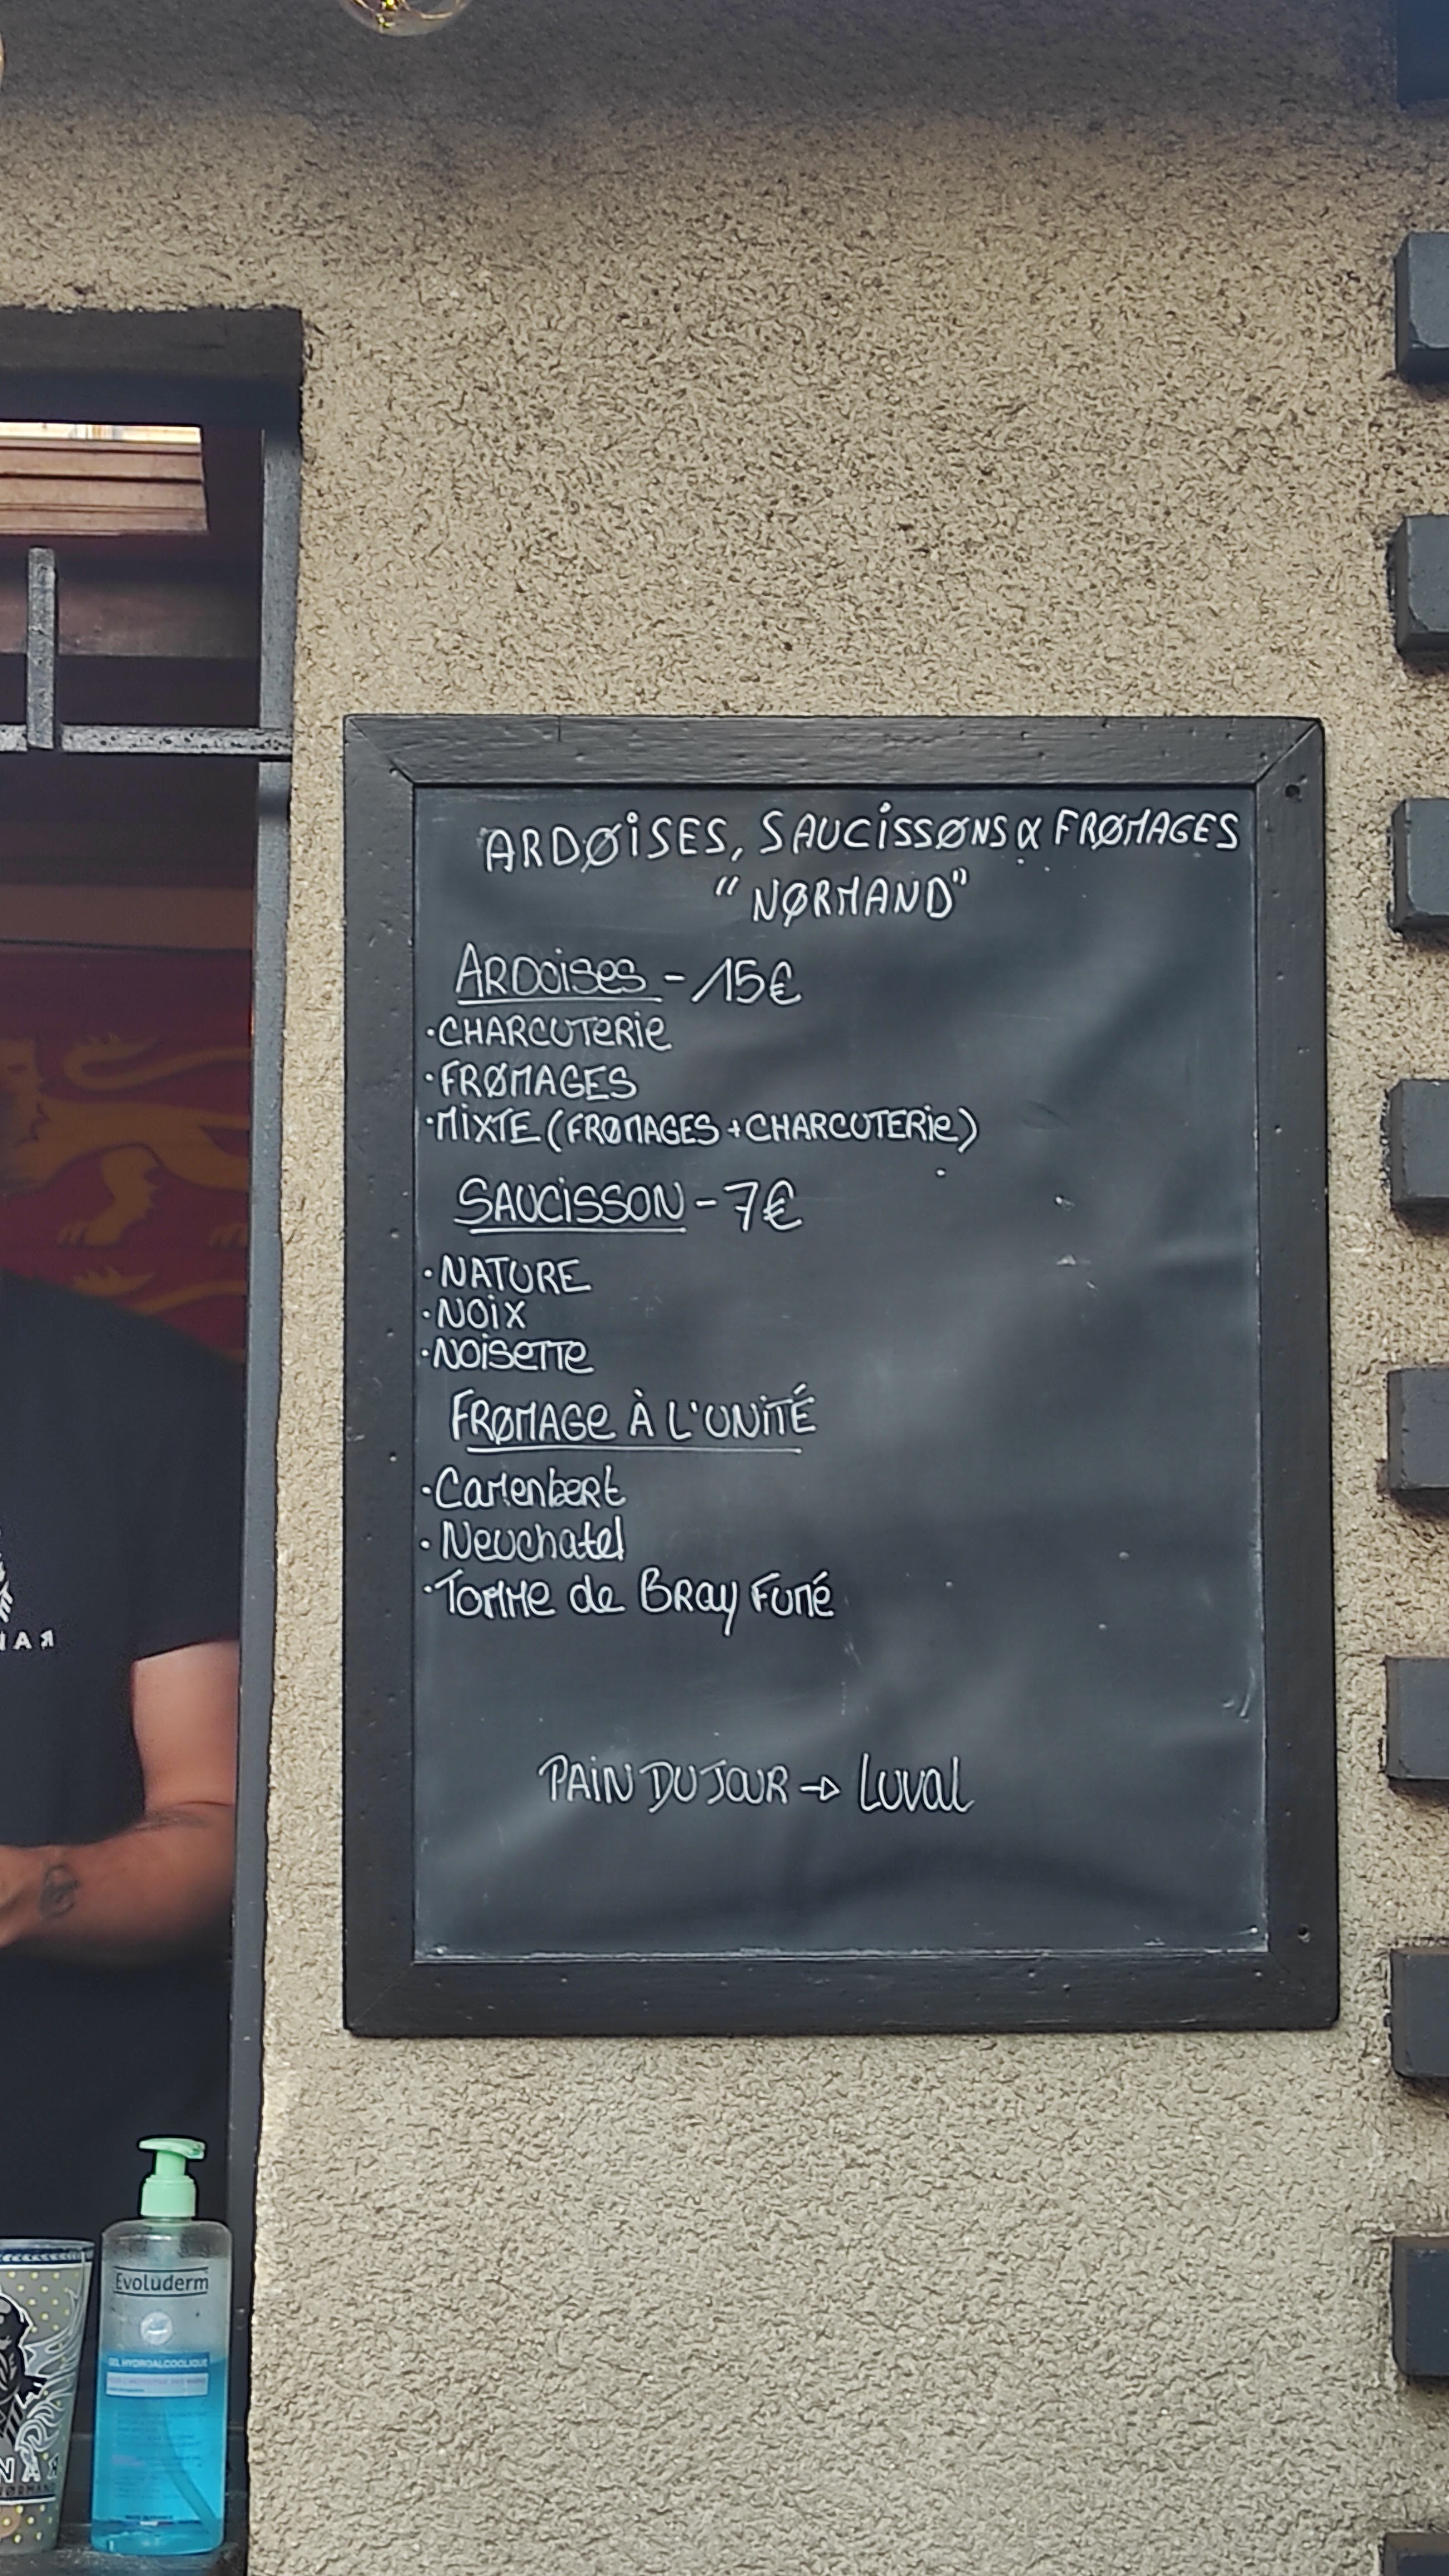 ARDØiSES, SAUCiSSØNS & FRØMAGES
"NØRMAND"
ARDoiSes - 15€
·CHARCUTeRie
·FRØMAGES
·MiXTE (FRØMAGES + CHARCUTERie)
SAUCiSSON - 7€
·NATURE
·NOiX
·NOiSeTTe
FRØMAGe À L'UNiTÉ
·Camenbert
·Neuchatel
·Tomme de Bray Fumé
PAiN DU JOUR → Luval
Evoluderm
GEL HYDROALCOOLIQUE